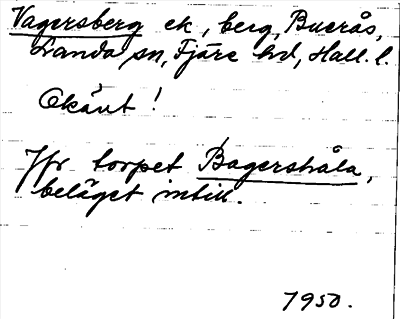 Vagersberg ek, berg, Buerås,
Landa sn, Fjäre hd, Hall. l.
Okänt!
Jfr torpet Bagershåla,
beläget intill.
1950.